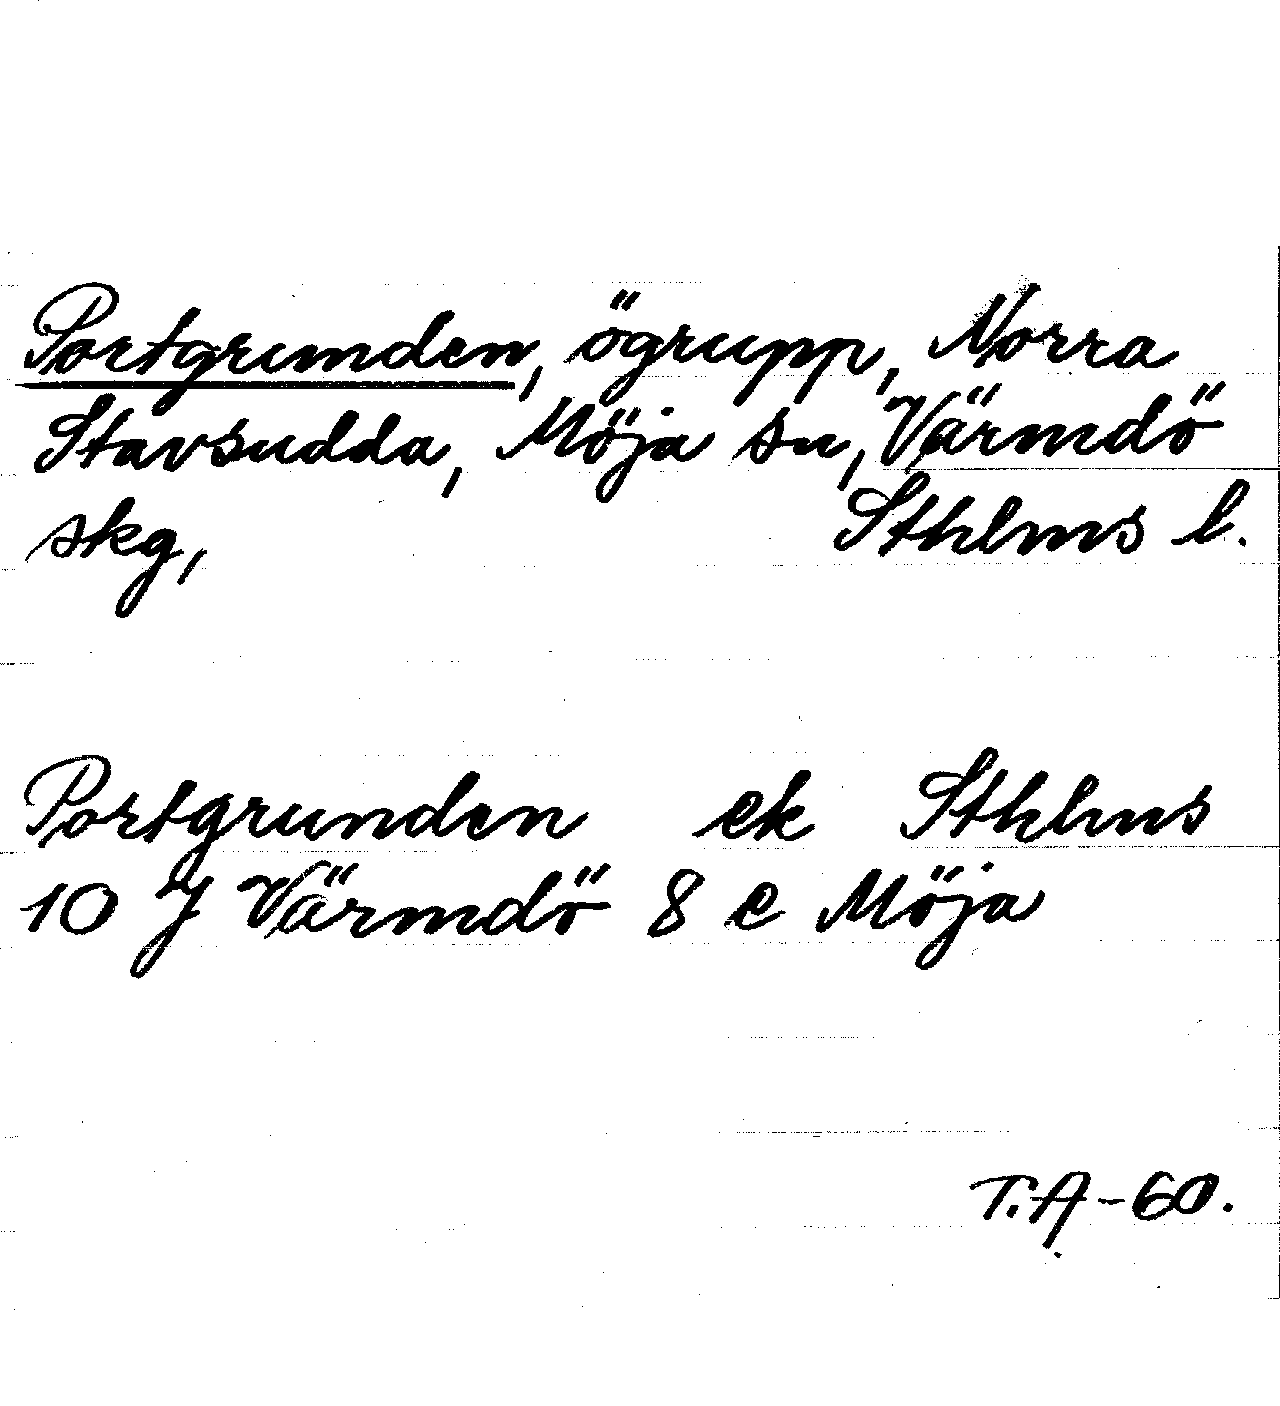 Portgrunden, ögrupp, Norra
Stavsudda, Möja sn, Värmdö
skg, Sthlms l.
Portgrunden ek Sthlms
10 J Värmdö 8 e Möja
T.A-60.